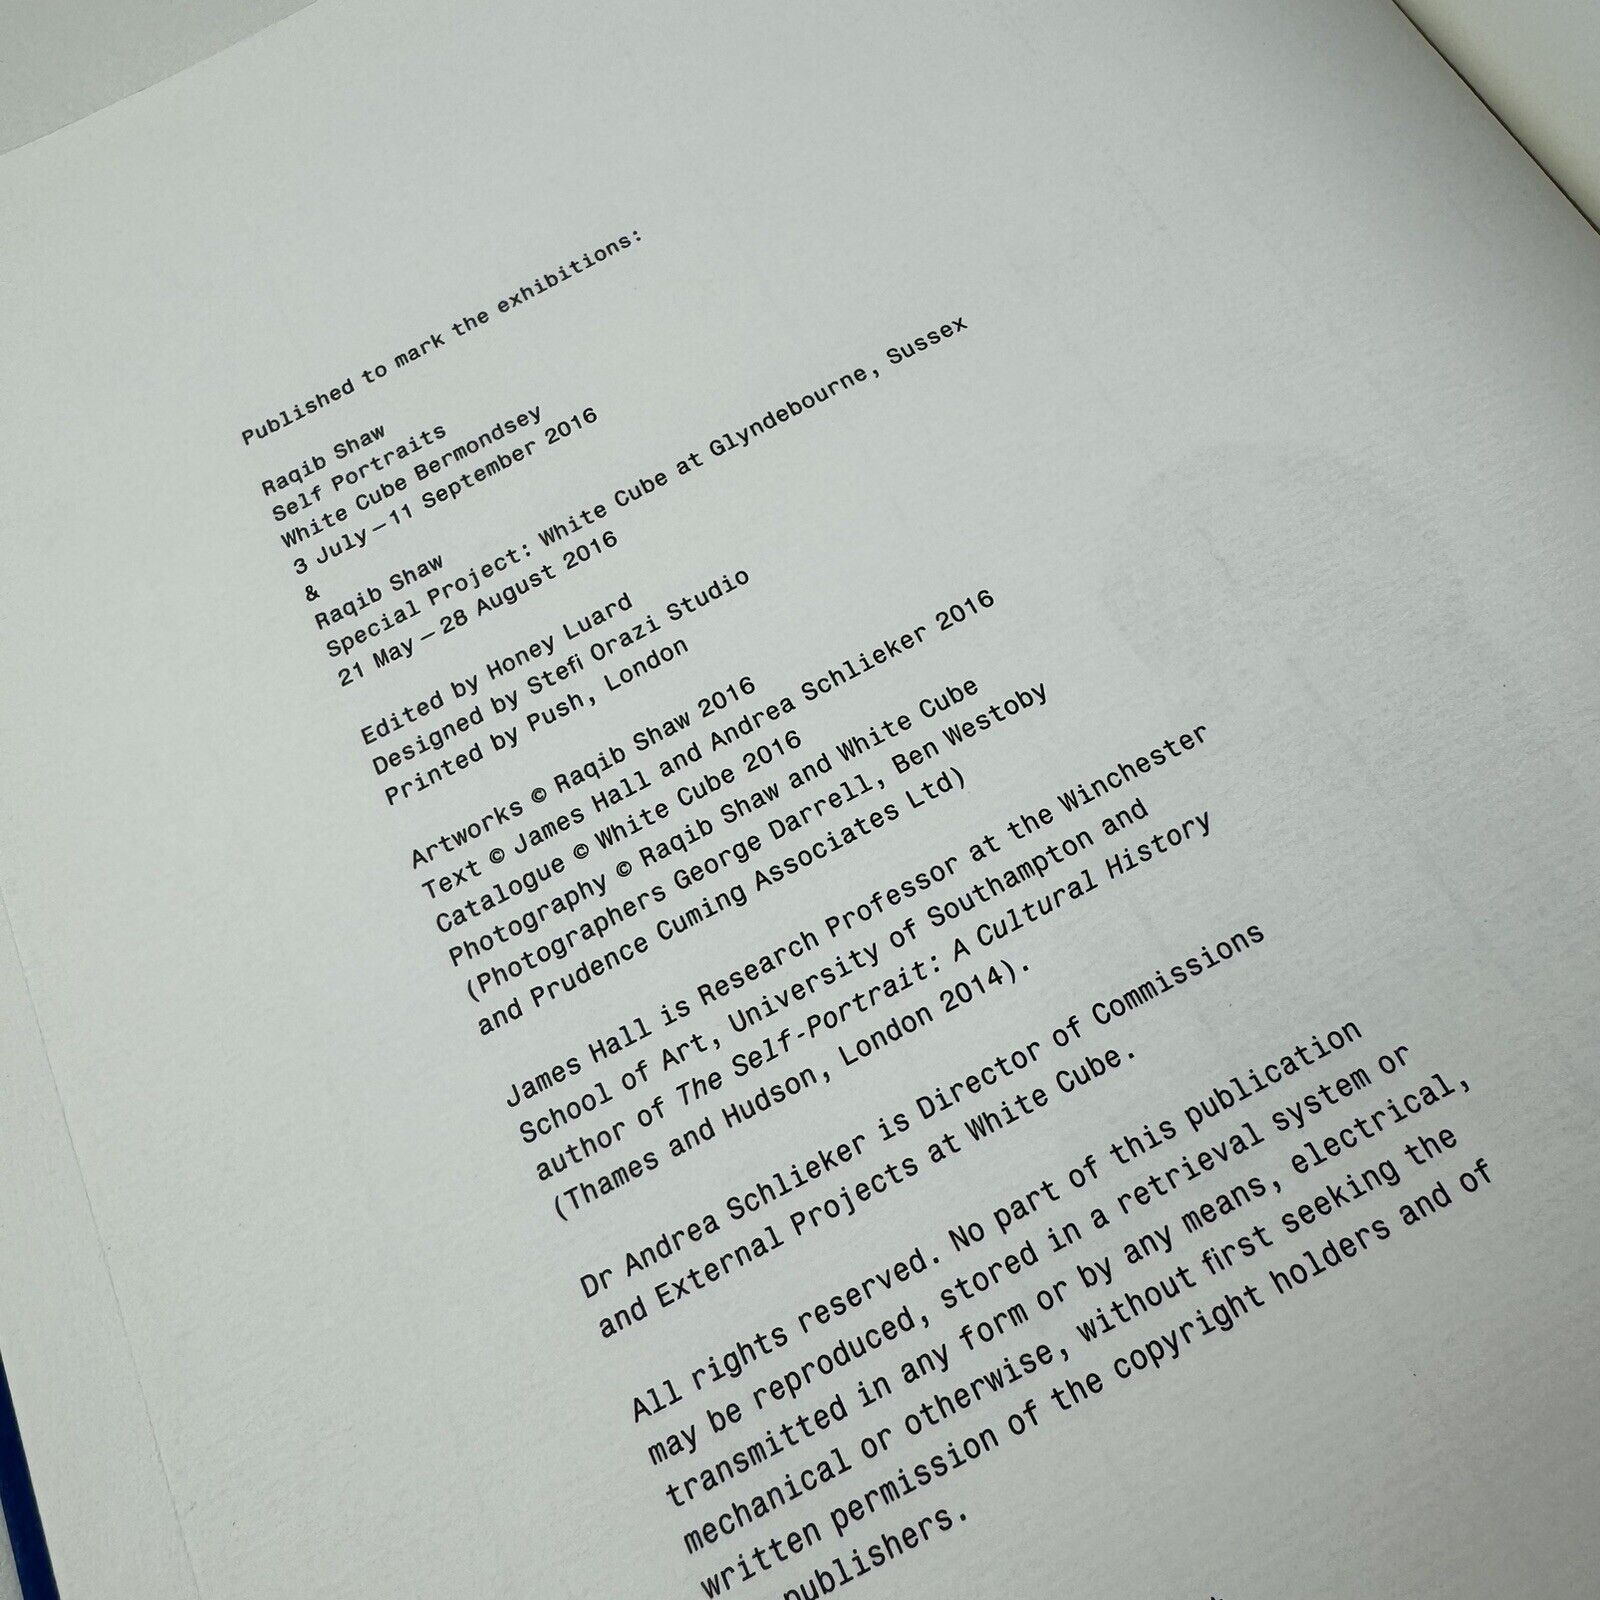 Published to mark the exhibitions:
Raqib Shaw
Self Portraits
White Cube Bermondsey
3 July – 11 September 2016
&
Raqib Shaw
Special Project: White Cube at Glyndebourne, Sussex
21 May – 28 August 2016
Edited by Honey Luard
Designed by Stefi Orazi Studio
Printed by Push, London
Artworks © Raqib Shaw 2016
Text © James Hall and Andrea Schlieker 2016
Catalogue © White Cube 2016
Photography © Raqib Shaw and White Cube
(Photographers George Darrell, Ben Westoby
and Prudence Cuming Associates Ltd)
James Hall is Research Professor at the Winchester
School of Art, University of Southampton and
author of The Self-Portrait: A Cultural History
(Thames and Hudson, London 2014).
Dr Andrea Schlieker is Director of Commissions
and External Projects at White Cube.
All rights reserved. No part of this publication
may be reproduced, stored in a retrieval system or
transmitted in any form or by any means, electrical,
mechanical or otherwise, without first seeking the
written permission of the copyright holders and of
publishers.